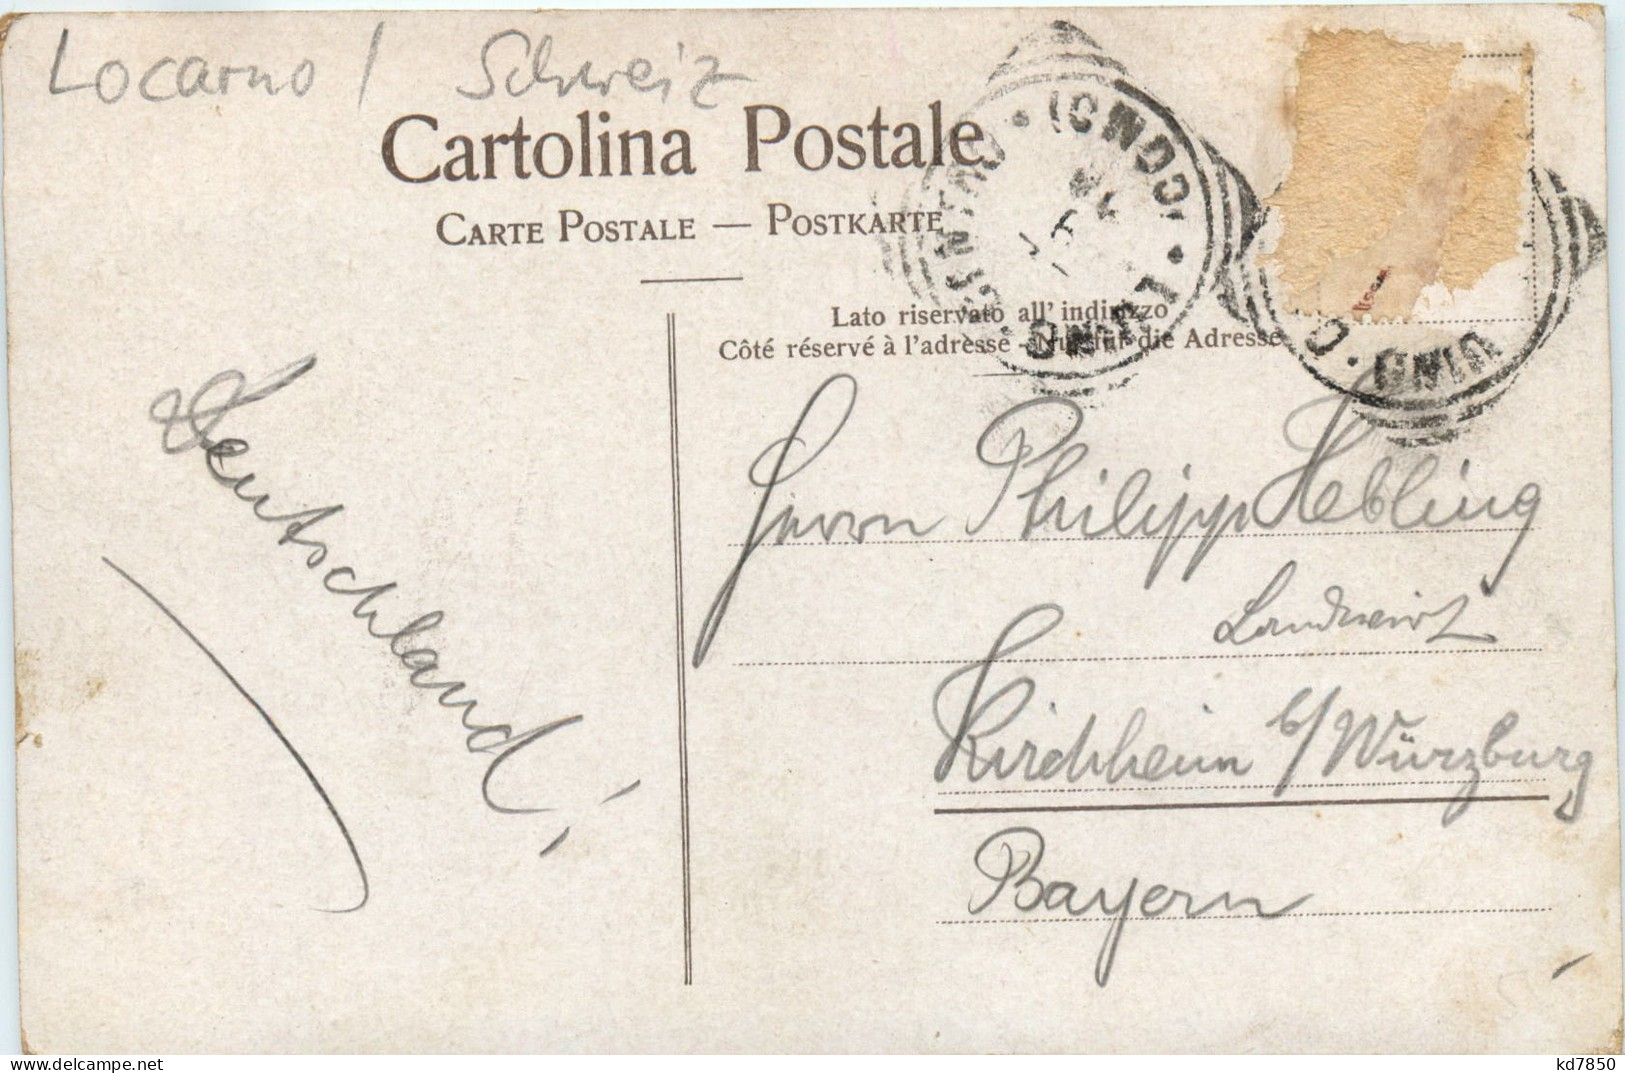 Locarno / Schweiz
Cartolina Postale
CARTE POSTALE — POSTKARTE
Lato riservato all' indirizzo
Côté réservé à l'adresse - Nur für die Adresse
LUINO
(COMO)
Deutschland
Herrn Philipp Hebling
Landwirt
Kirchheim b/Würzburg
Bayern
delcampe.net
kd7850